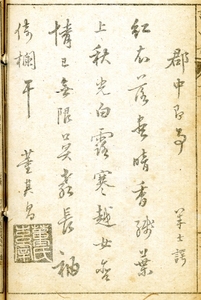 郡中即事 羊士諤
紅衣落盡暗香殘葉
上秋光白露寒越女含
情已無限莫教長袖
倚欄干 董其昌